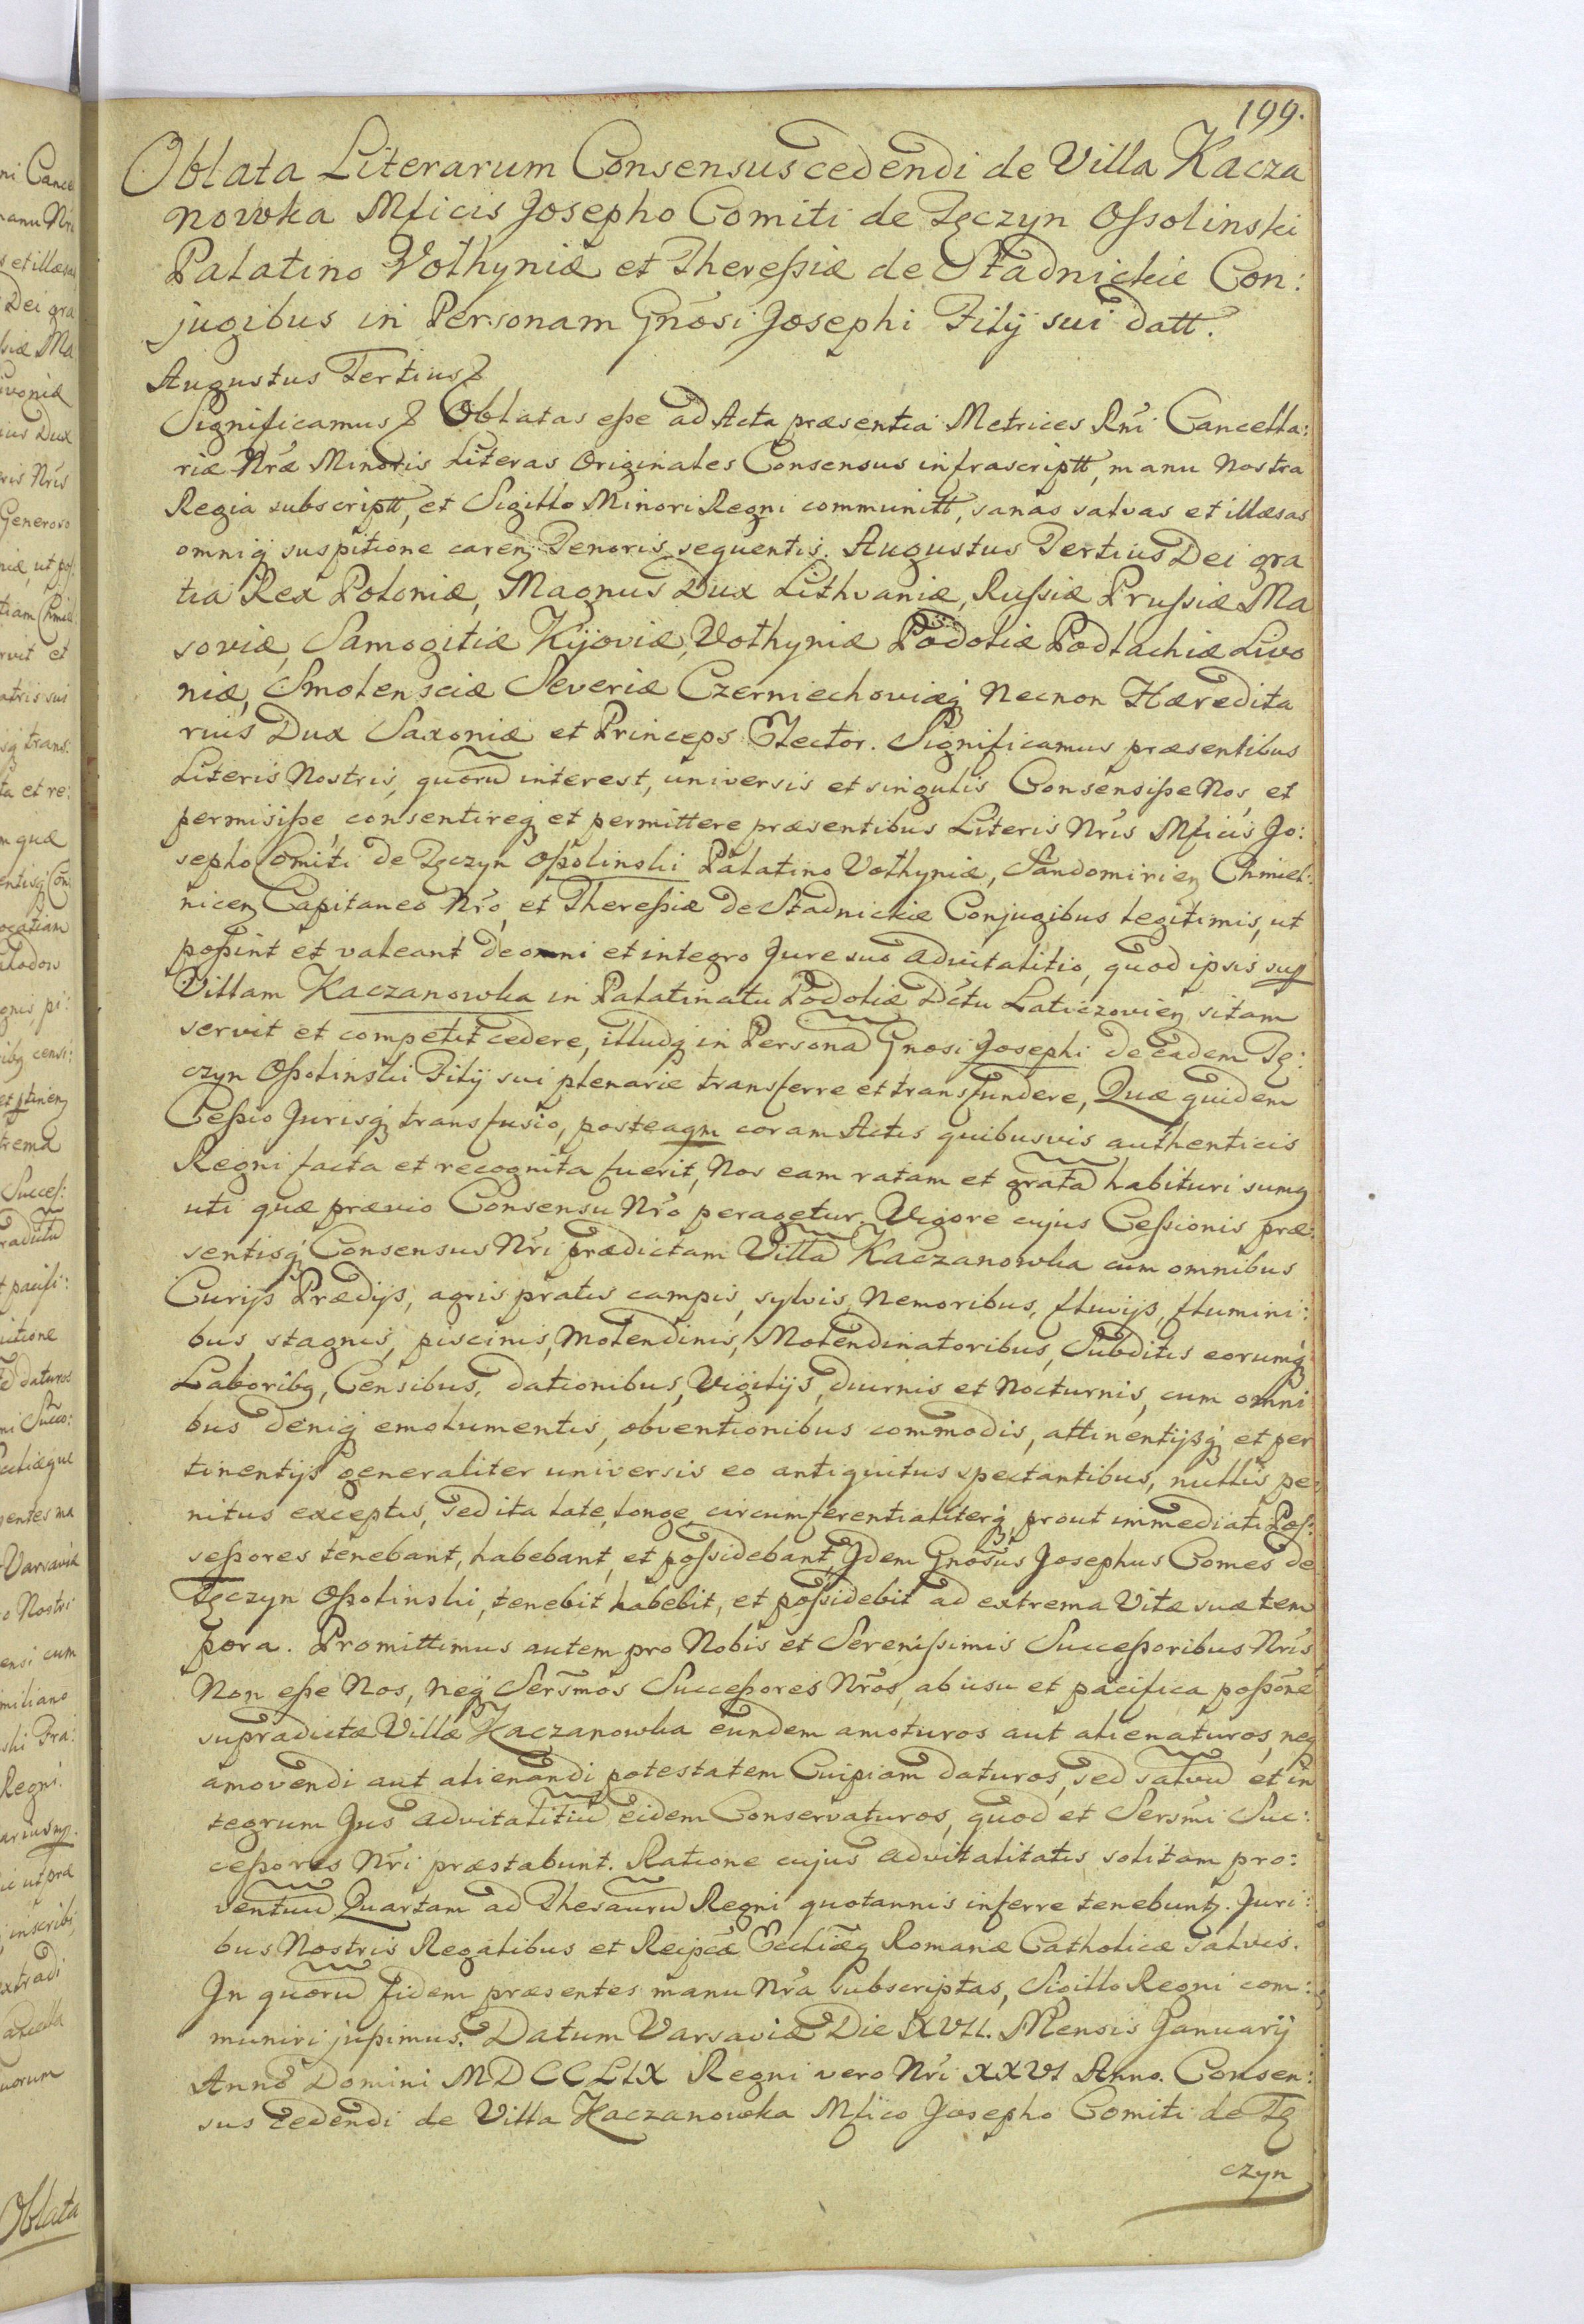 199.
Oblata Literarum Consensus cedendi de Villa Kacza
nowka Mficis Josepho Comiti de Tęczyn Ossolinski
Palatino Volhyniæ et Theressiæ de Stadnickie Con:
jugibus in Personam Gnōsi Josephi Filij sui datt.
Augustus Tertius &
Significamus & Oblatas esse ad Acta præsentia Metrices Rni Cancella:
riæ Nræ Minoris Literas Originales Consensus infrascriptt, manu Nostra
Regia subscriptt, et Sigillo Minori Regni communitt, sanas salvas et illæsas
omniq suspitione caren Tenoris sequentis. Augustus Tertius Dei gra
tia Rex Poloniæ, Magnus Dux Lithvaniæ, Russiæ Prussiæ Ma
soviæ, Samogitiæ Kijoviæ, Volhyniæ Podoliæ Podlachiæ Livo
niæ, Smolensciæ Severiæ Czerniechoviæq Necnon Hæredita
rius Dux Saxoniæ et Princeps Elector. Significamus præsentibus
Literis Nostris, quorū interest, universis et singulis Consensisse Nos, et
permisisse, consentireq et permittere præsentibus Literis Nris Mficis Jo:
sepho Comiti de Tęczyn Ossolinski Palatino Volhyniæ, Sandomirien Chmiel:
nicen Capitaneo Nro, et Theressiæ de Stadnickie Conjugibus legitimis, ut
possint et valeant de omni et integro Jure suo advitalitio, quod ipsis sup
Villam Kaczanowka in Palatinatu Podoliæ Dctu Laticzovien sitam
servit et competit cedere, illudq in Personā Gnosi Josephi de eadem Tę:
czyn Ossolinski Filij sui plenarie transferre et transfundere, Quæ quidem
Cessio Jurisq transfusio, posteaqm coram Actis quibusvis authenticis
Regni facta et recognita fuerit, Nos eam ratam et gratā habituri sumq
uti quæ prævio Consensu Nro peragetur. Vigore cujus Cessionis præ:
sentisq Consensus Nri prædictam Villā Kaczanowka cum omnibus
Curijs Prædijs, agris pratis campis, sylvis Nemoribus, fluvijs, flumini:
bus stagnis, piscinis, Molendinis, Molendinatoribus, Subditis eorumq
Laboribq, Censibus, dationibus, Vigilijs, diurnis et Nocturnis, cum omni
bus deniq emolumentis, obventionibus commodis, attinentijsq et per
tinentijs generaliter universis eo antiquitus spectantibus, nullis pe:
nitus exceptis, sed ita late, longe, circumferentialiterq prout immediati Pos:
sessores tenebant, habebant, et possidebant, Jdem Gnosus Josephus Comes de
Tęczyn Ossolinski, tenebit habebit, et possidebit ad extrema Vitæ suæ tem
pora. Promittimus autem pro Nobis et Serenissimis Successoribus Nris
Non esse Nos, neq Sersmos Successores Nros, ab usu et pacifica possōne
supradictæ Villæ Kaczanowka eundem amoturos aut alienaturos, neq
amovendi aut alienandi potestatem Cuipiam daturos, sed salvū et in
tegrum Jus advitalitiū eidem Conservaturos, quod et Sersmi Suc:
cessores Nri præstabunt. Ratione cujus advitalitatis solitam pro:
ventuū Quartam ad Thesaurū Regni quotannis inferre tenebunt. Juri:
bus Nostris Regalibus et Reipcæ Eccliæq Romanæ Catholicæ salvis.
In quorū fidem præsentes manu Nra subscriptas, Sigillo Regni com:
muniri jussimus. Datum Varsaviæ Die XVII. Mensis Januarij
Anno Domini MDCCLIX Regni vero Nri XXVI Anno. Consen:
sus cedendi de Villa Kaczanowka Mfico Josepho Comiti de Tę
czyn
Oblata